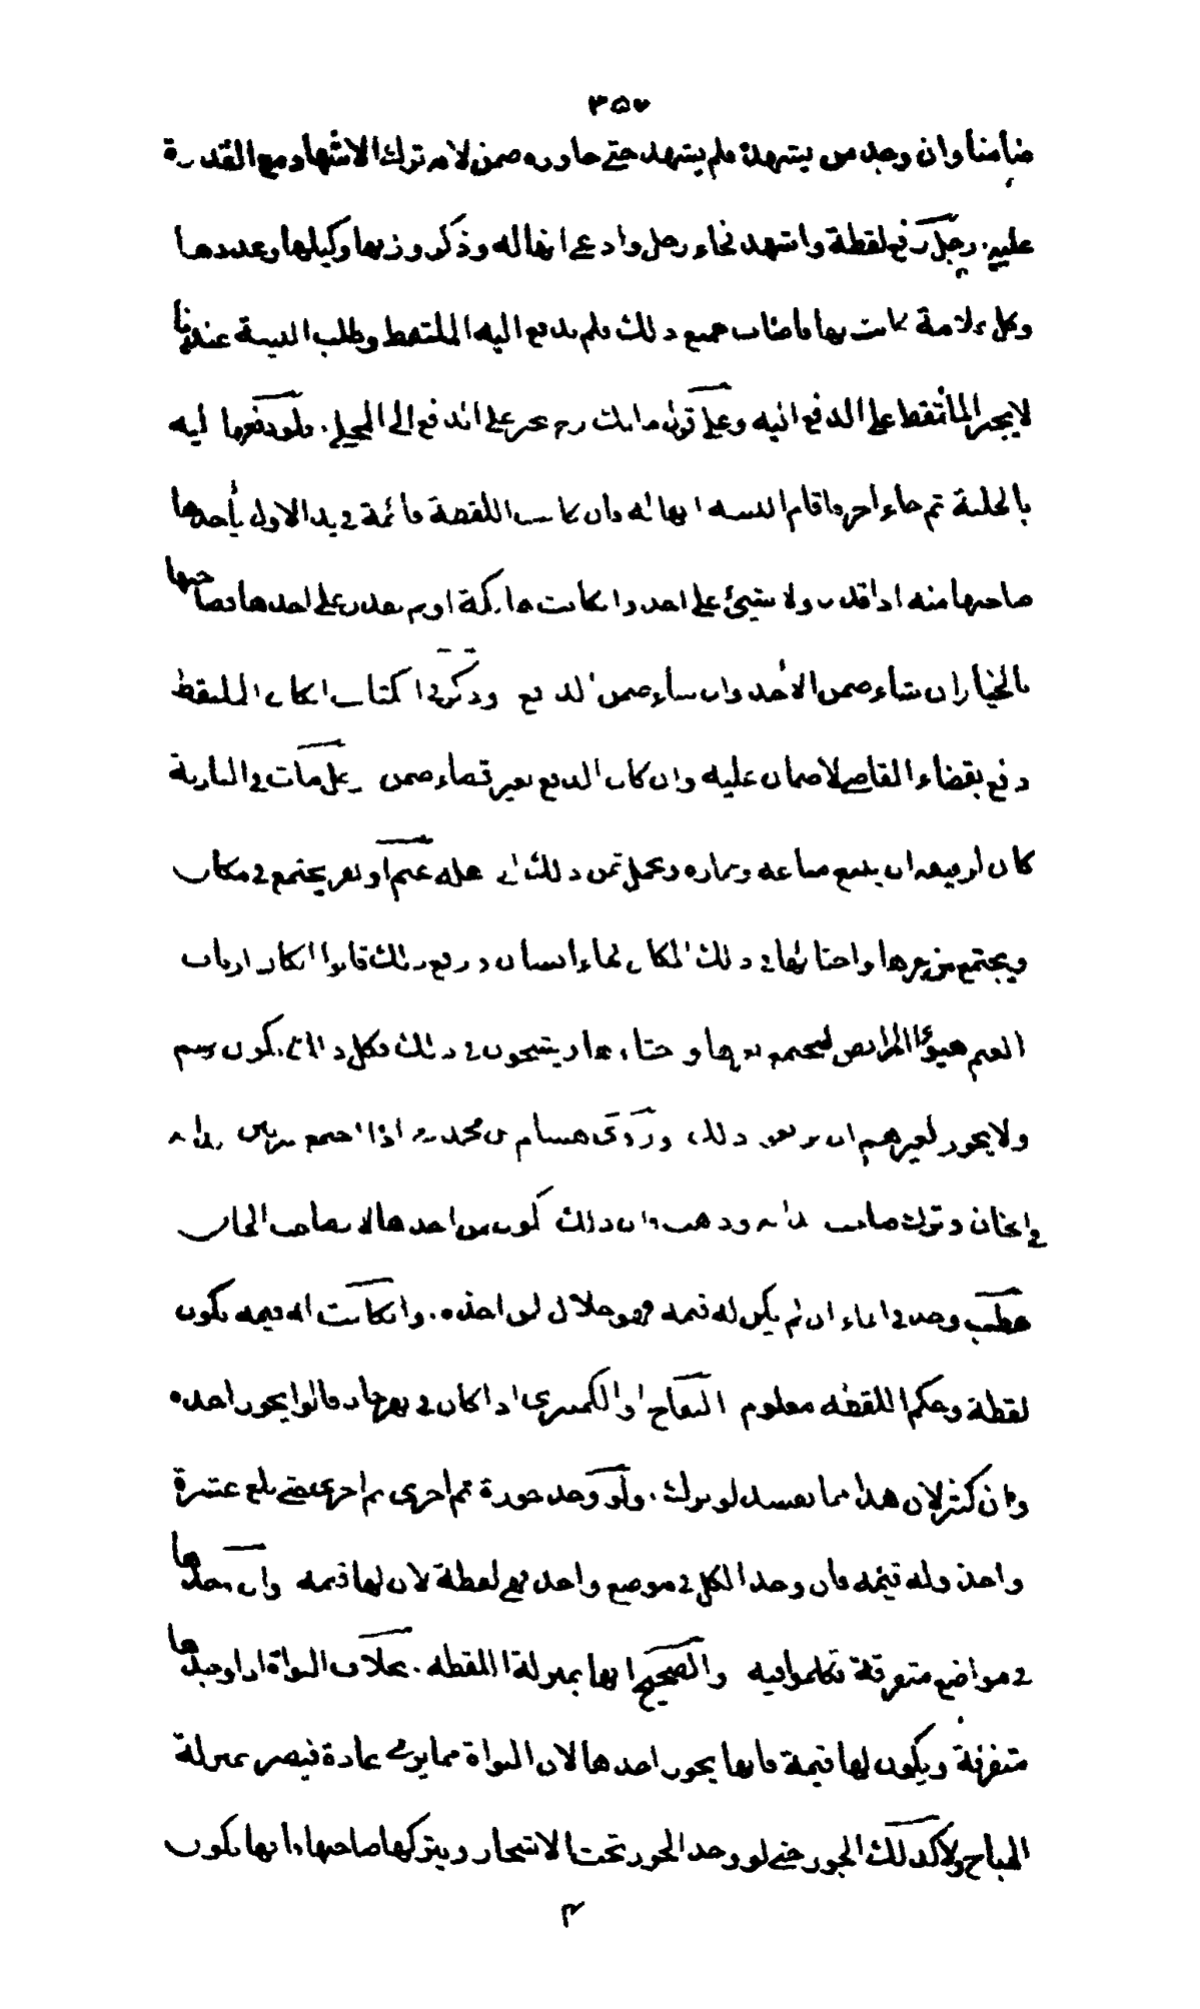 ٣٥٧
ضامنا وان وجد من يشهده فلم يشهد حتى جاوره ضمن لانه ترك الاشهاد مع القدرة
عليه. رجل رفع لقطة واشهد فجاء رجل وادعى انها له وذكر وزنها وكيلها وعددها
وكل علامة كانت بها فاصاب جميع ذلك فلم يدفع اليه الملتقط وطلب البينة عندنا
لايجبر الملتقط على الدفع اليه وعلى قول مالك رح يجبر على الدفع الى المحلي. ولو دفعها اليه
بالحلية ثم جاء اخر واقام البينة انها له فان كانت اللقطة قائمة في يد الاول يأخذها
صاحبها منه اذا قدر ولا شيئ على احد وان كانت هالكة او لم يقدر على اخذها فصاحبها
بالخيار ان شاء ضمن الاخذ وان شاء ضمن الدافع وذكر في الكتاب ان كان الملتقط
دفع بقضاء القاضي لاضمان عليه وان كان الدفع بغير قضاء ضمن رجل مات في البادية
كان لرفيقه ان يبيع متاعه وحماره ويحمل ثمن ذلك الى اهله غنم او بقر يجتمع في مكان
ويجتمع من بعرها واحثائها في ذلك المكان فجاء انسان ورفع ذلك قالوا ان كان ارباب
الغنم هيؤا المرابض ليجتمع بعرها و حثاءها ويشحون في ذلك فكل ذلك يكون لهم
ولايجوز لغيرهم ان يرفعوا ذلك وروى هشام عن محمد رح اذا اجتمع سرقين الدابة
في الخان وترك صاحب الدابة وذهب فان ذلك يكون لمن اخذها لا لصاحب الخان
حطب وجد في الماء ان لم يكن له قيمة فهو حلال لمن اخذه. وان كانت له قيمة يكون
لقطة وحكم اللقطة معلوم التفاح او الكمثرى اذا كان في نهر جار قالوا يجوز اخذه
وان كثر لان هذا مما يفسد لو ترك. ولو وجد جوزة ثم اخرى ثم اخرى حتى بلغ عشرة
واخذ وله قيمة فان وجد الكل في موضع واحد فهي لقطة لان لها قيمة وان وجدها
في مواضع متفرقة تكلموا فيه والصحيح انها بمنزلة اللقطة. بخلاف النواة اذا وجدها
متفرقة ويكون لها قيمة فانها يجوز اخذها لان النواة مما يرمى عادة فيصير بمنزلة
المباح ولا كذلك الجوز حتى لو وجد الجوز تحت الاشجار ويتركها صاحبها فانها يكون